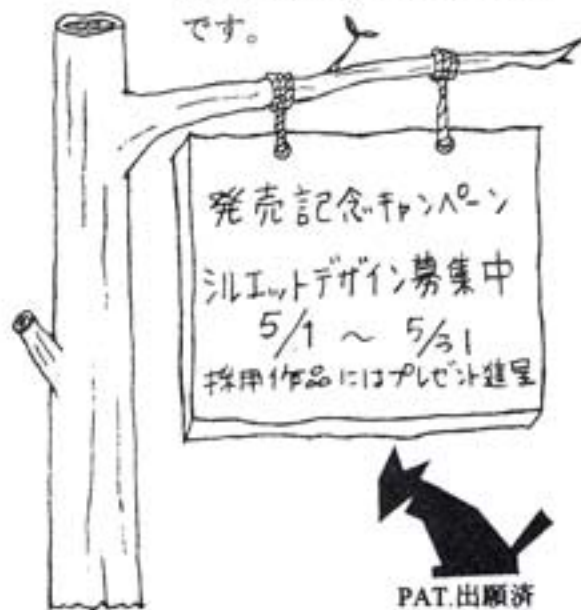 です。
発売記念キャンペーン
シルエットデザイン募集中
5/1 ～ 5/31
採用作品にはプレゼント進呈
PAT.出願済